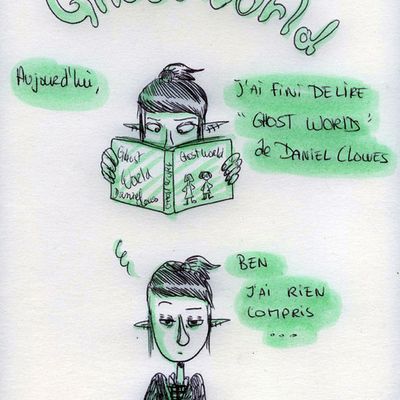 Ghost World
Aujourd'hui,
J'ai fini de lire
"Ghost World"
de Daniel Clowes
Ghost
World
Daniel
Clowes
Ghost World
Ben
J'ai rien
compris
...